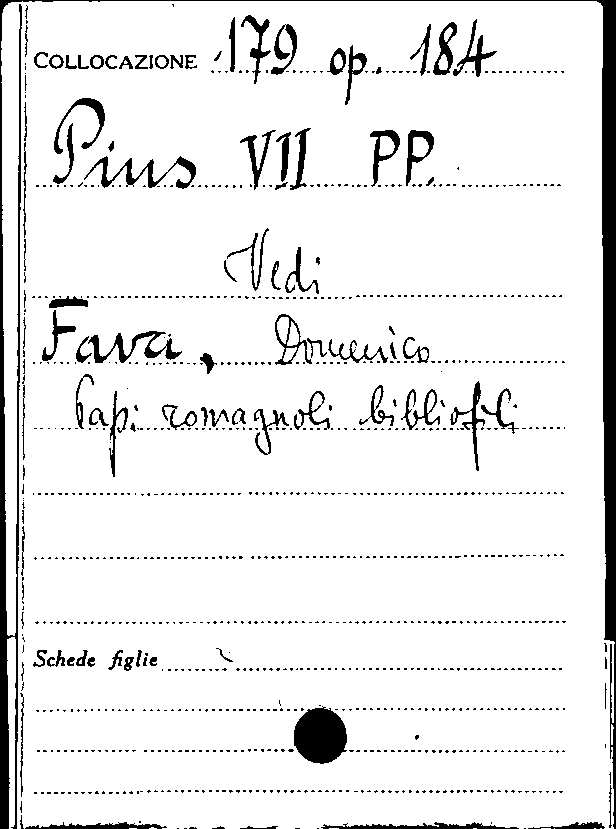 COLLOCAZIONE 179 op. 184
Pius VII PP.
Vedi
Fava, Domenico
Papi romagnoli bibliofili
Schede figlie